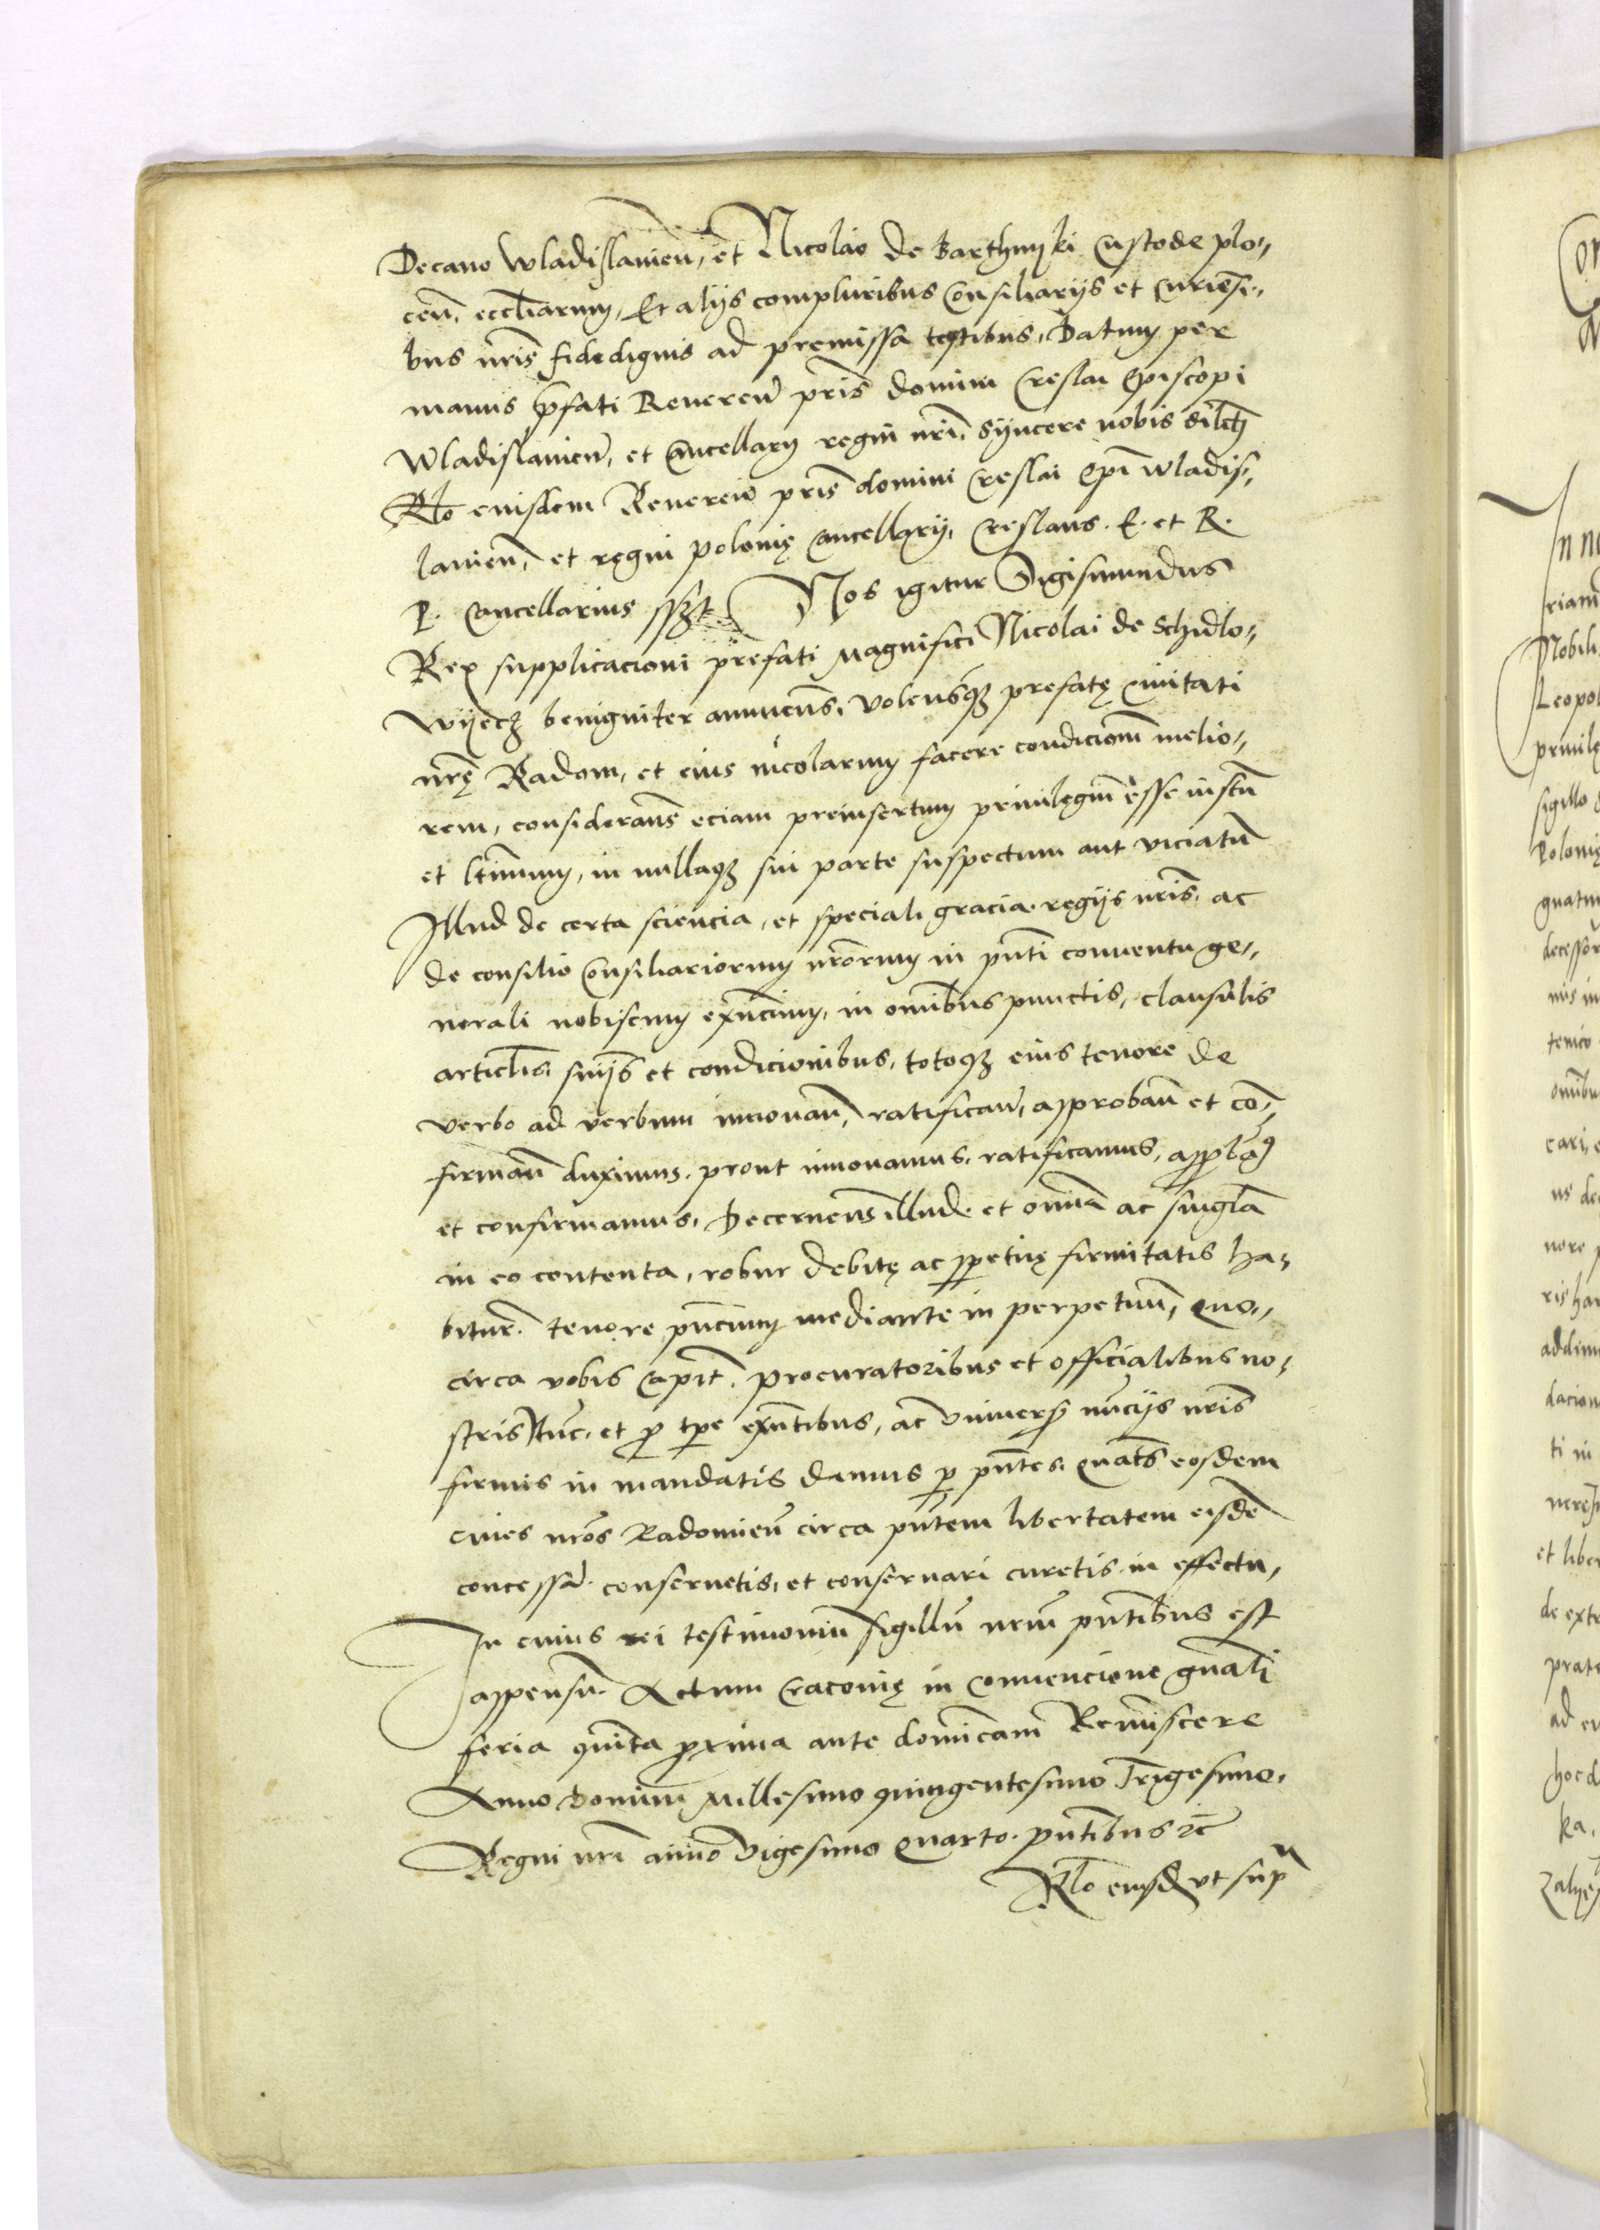 Decano Wladislauien̄, et Nicolao de Barthniki Custode plo-
cen̄. eccl̄iarum, Et alijs compluribus Consiliarijs et Curiense-
bus nr̄is fidedignis ad premissa testibus, Datum per
manus p̄fati Reueren̄ pr̄is domini Creslai Episcopi
Wladislauien̄, et Cancellarij regni nr̄i, Syncere nobis dilecti
Rl̄o eiusdem Reueren̄ pr̄is domini Creslai Ep̄i Wladis-
lauien̄, et regni polonię Cancellarij, Creslaus. E. et R.
P. Cancellarius sszt. Nos igitur Sigismundus
Rex supplicacioni prefati Magnifici Nicolai de Schidlo-
wyecz benigniter annuens, volensq₃ prefatę ciuitati
nr̄ę Radom, et eius incolarum facere condicionem melio-
rem, considerans eciam preinsertum priuilegiū esse iustū
et l̄timum, in nullaq₃ sui parte suspectum aut viciatū
Illud de certa sciencia, et speciali gracia regijs nr̄is, ac
de consilio Consiliariorum nr̄orum in pn̄ti conuentu ge-
nerali nobiscum ex̄n̄cium, in omnibus punctis, clausulis
articl̄is, suijs et condicionibus, totoq₃ eius tenore de
verbo ad verbum innouan̄, ratifican̄, approban̄ et con-
firman̄ duximus, prout innouamus, ratificamus, app̄bam⁹
et confirmamus, Decernens illud et omnia ac singl̄a
in eo contenta, robur debitę ac ꝑpetuę firmitatis ha-
bitur̄. tenore pn̄cium mediante in perpetuū, Quo-
circa vobis Capit̄. procuratoribus et officialibus no-
stris nūc, et ꝓ tp̄e ex̄n̄tibus, ac vniuers̄ nūcijs nr̄is
firmis in mandatis damus ꝑ pn̄tes, quat̄s eosdem
ciues nr̄os Radomien̄ circa pn̄tem libertatem eisdē
concessā. conseruetis, et conseruari curetis in effectu,
In cuius rei testimoniū sigillū nr̄um pn̄tibus est
appensū. Actum Cracouię in Conuencione gn̄ali
feria quinta ꝓxima ante domīcam Reminiscere
Anno Domini Millesimo quingentesimo Trigesimo.
Regni nr̄i anno vigesimo quarto. pn̄tibus ⁊c̄
Rl̄o eiusd̄ vt sup̄